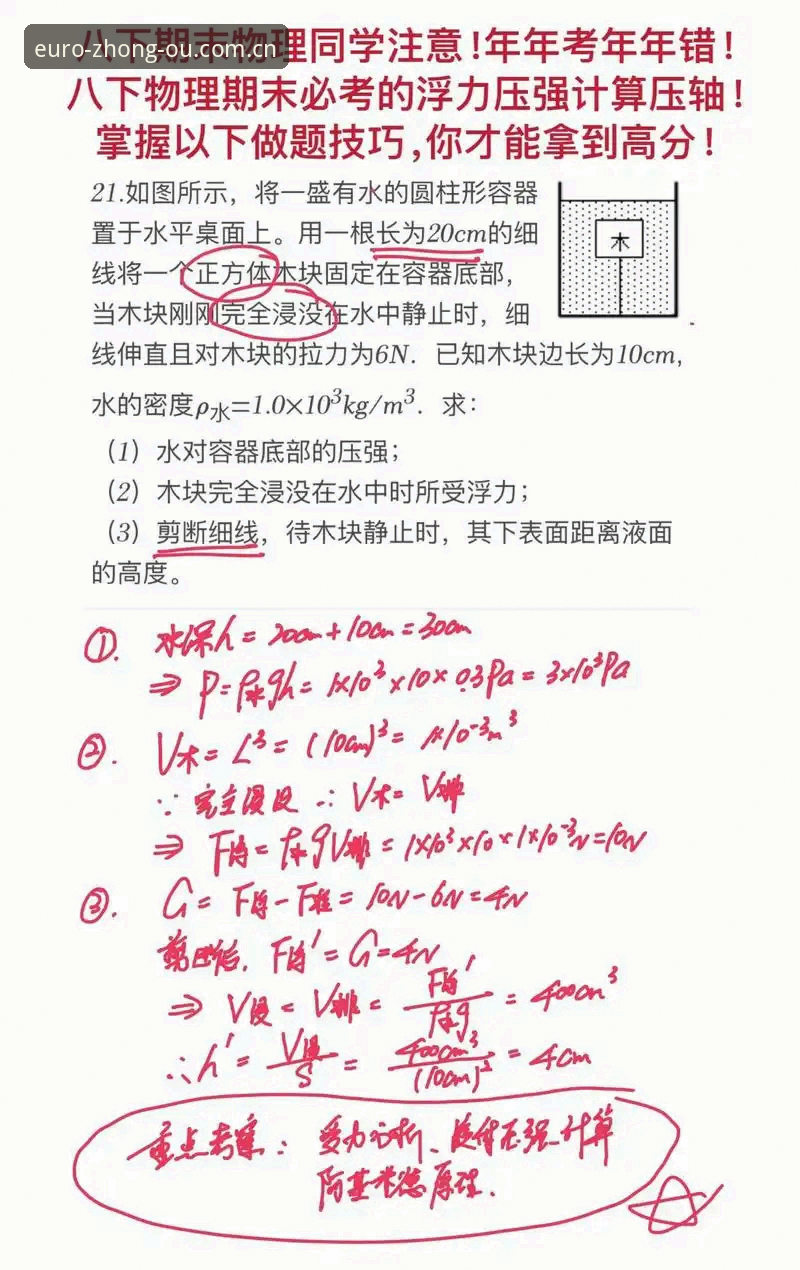 八下期末物理同学注意!年年考年年错!
euro-zhong-ou.com.cn
八下物理期末必考的浮力压强计算压轴!
掌握以下做题技巧,你才能拿到高分!
21.如图所示，将一盛有水的圆柱形容器
置于水平桌面上。用一根长为20cm的细
线将一个正方体木块固定在容器底部，
当木块刚刚完全浸没在水中静止时，细
线伸直且对木块的拉力为6N．已知木块边长为10cm，
水的密度ρ水=1.0×10³kg/m³．求：
（1）水对容器底部的压强；
（2）木块完全浸没在水中时所受浮力；
（3）剪断细线，待木块静止时，其下表面距离液面
的高度。
木
①. 水深h = 20cm+10cm=30cm
⇒ P=ρ水gh= 1×10³×10×0.3Pa= 3×10³Pa
②. V木= L³= (10cm)³= 1×10⁻³m³
∵ 完全浸没 ∴ V木= V排
⇒ F浮= ρ水gV排= 1×10³×10×1×10⁻³N=10N
③. G= F浮-F拉= 10N-6N=4N
剪断后, F浮'=G=4N
⇒ V浸= V排= F浮'/ρ水g = 400cm³
∴h'= V浸/S = 400cm³/(10cm)² = 4cm
重点考察: 受力分析、液体压强计算
阿基米德原理.